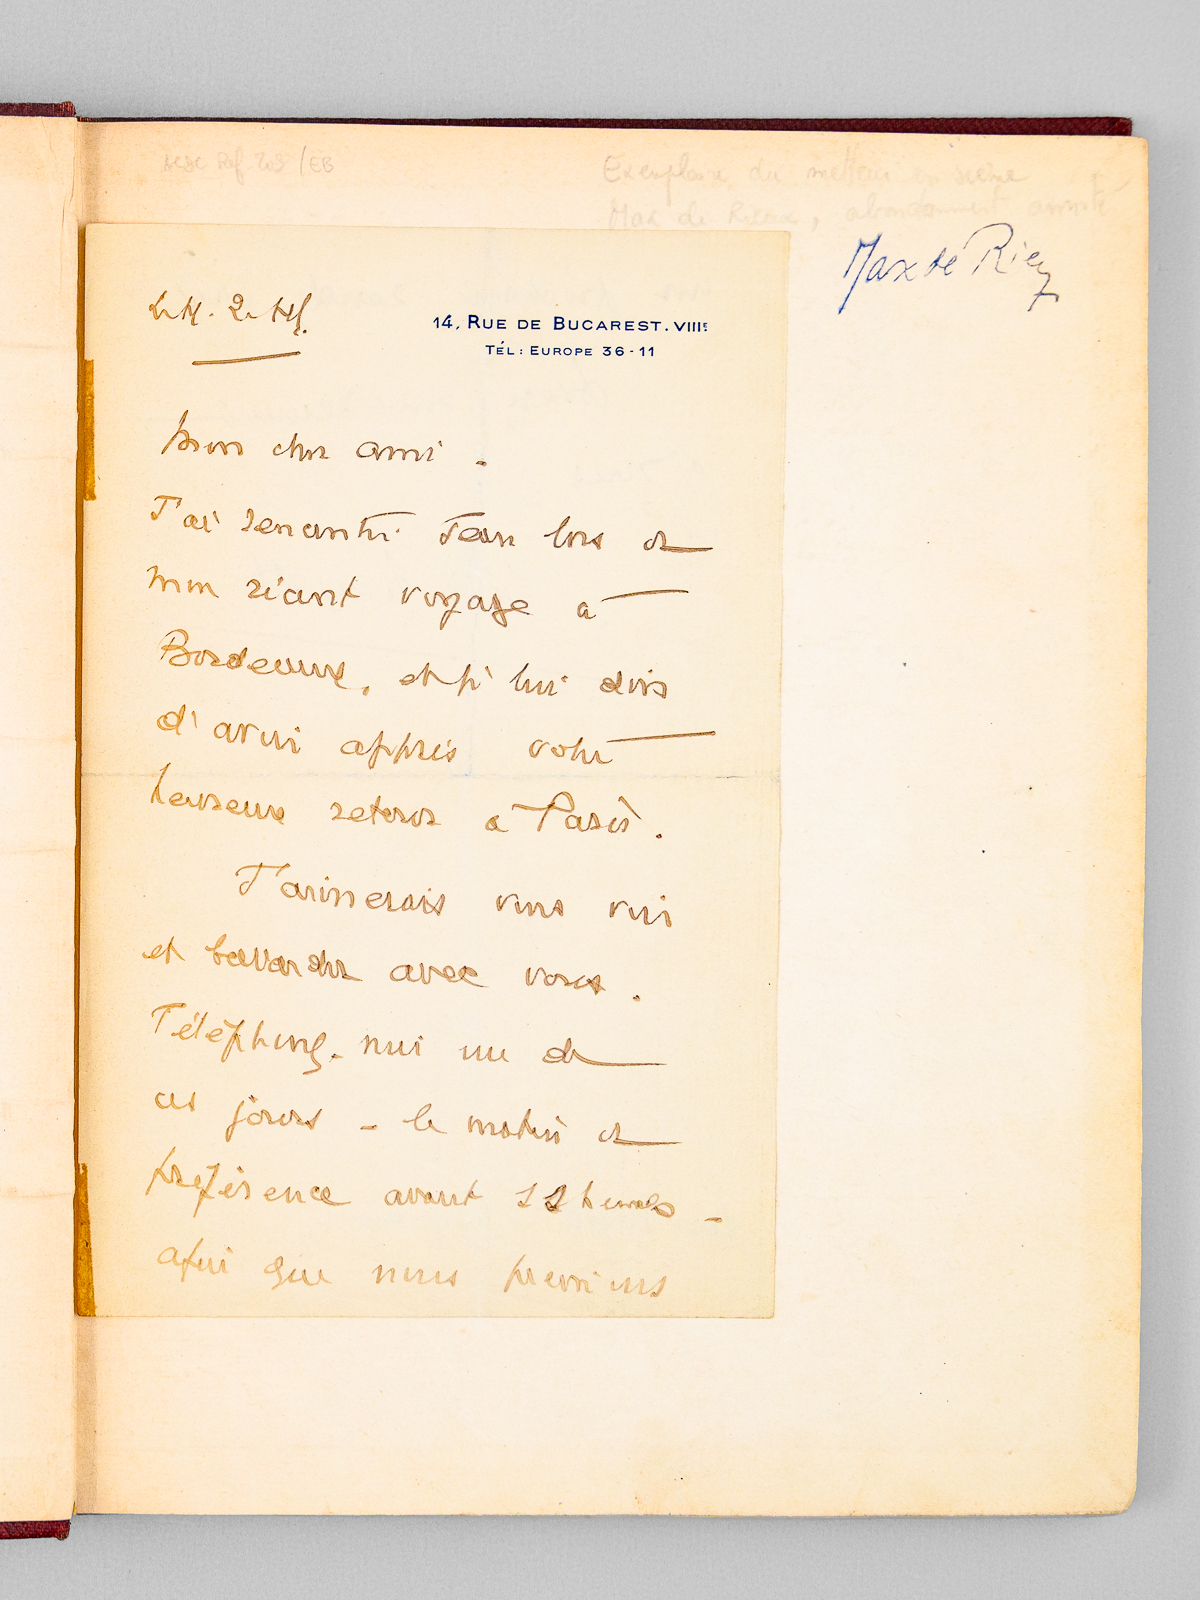 Exemplaire du metteur en scène
Max de Rieux, abondamment annoté
Max de Rieux
14, RUE DE BUCAREST. VIIIE
TÉL : EUROPE 36-11
Mon cher ami.
J'ai rencontré Jean lors de
mon récent voyage à
Bordeaux, et je lui dois
d'avoir appris votre
heureux retour à Paris.
J'aimerais vous voir
et bavarder avec vous.
Téléphonez-moi un de
ces jours - le matin de
préférence avant 11 heures -
afin que nous prenions